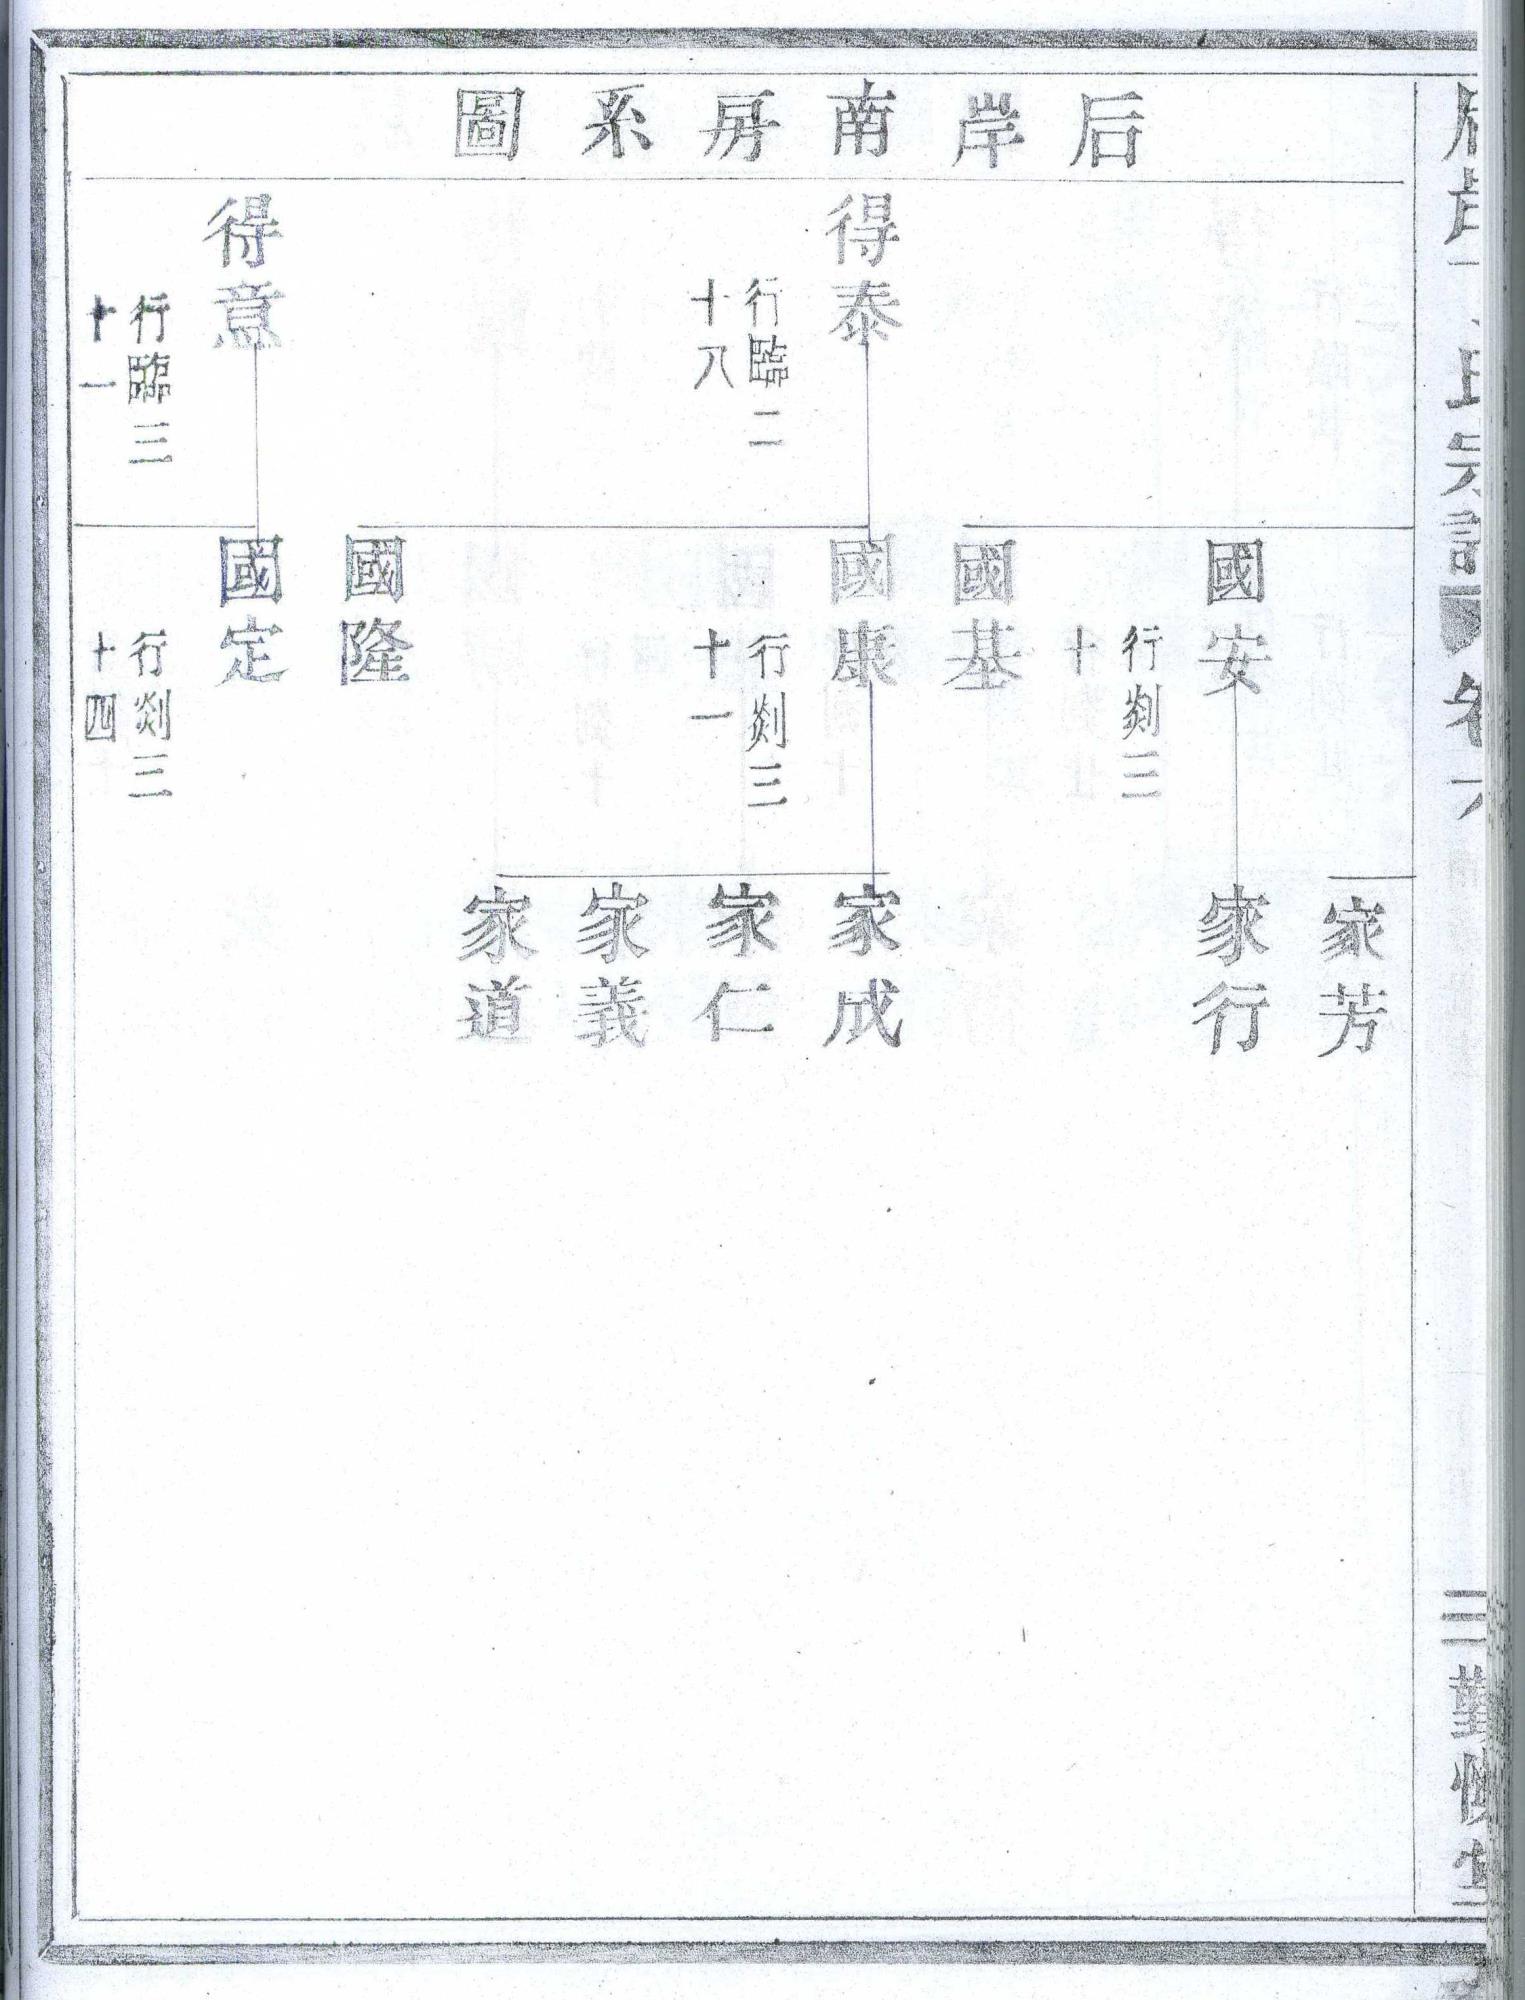 后岸南房系圖
得泰
行臨二
十八
得意
行臨三
十一
國安
行剡三
十
國基
國康
行剡三
十一
國隆
國定
行剡三
十四
家芳
家行
家成
家仁
家義
家道
氏宗譜
卷
三
勤